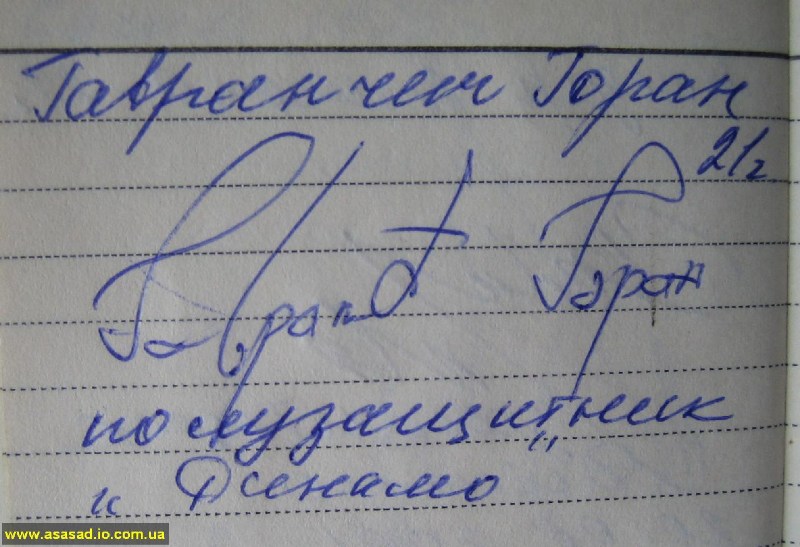 Гавранчич Горан
21г
Горан
полузащитник
"Динамо"
www.asasad.io.com.ua